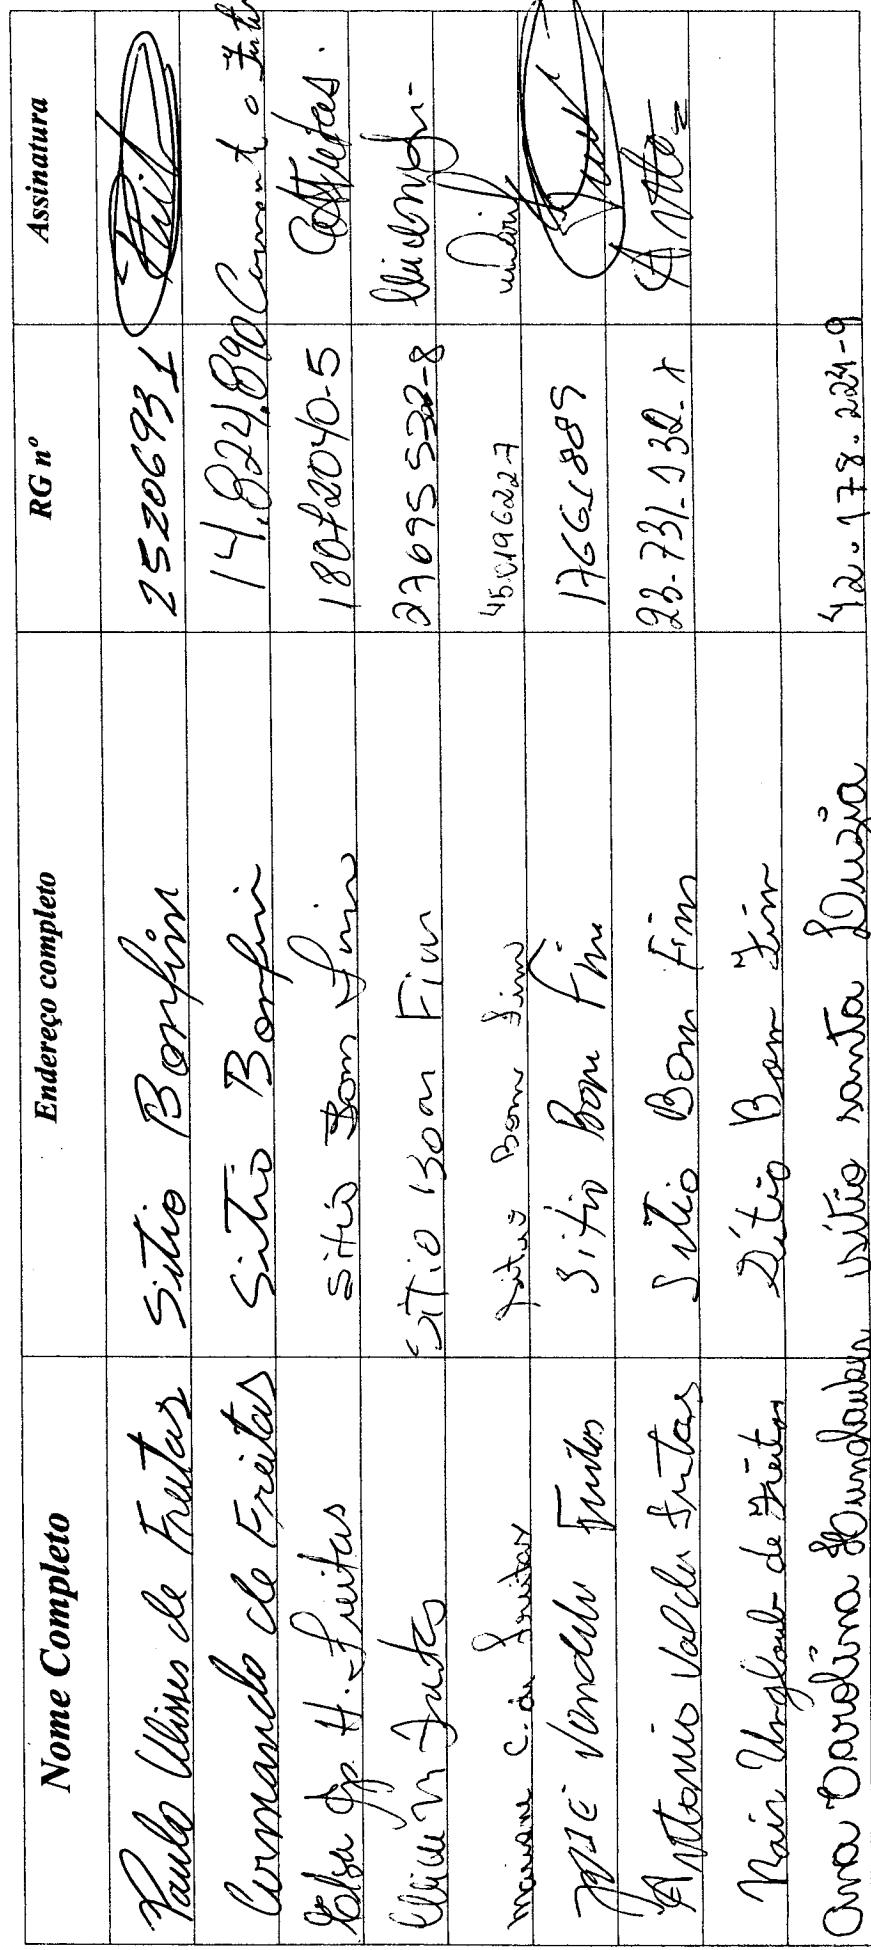 Nome Completo Endereço completo RG nº Assinatura
Paulo Ulisses de Freitas Sitio Bonfim 25206931
Armando de Freitas Sitio Bonfim 14.824.890 Armando de Freitas
Elsa Ap. H. Freitas Sitio Bom Fim 18072040-5 Freitas.
Cleide M Freitas Sitio Bom Fim 27695532-8
Mariane C. de Freitas Sitio Bom Fim 45.019622-7
José Vanderlei Freitas Sitio Bom Fim 17661889
Antonio Valdir Freitas Sitio Bom Fim 23.731.132-x
Nair Unglaub de Freitas Sítio Bom Fim
Ana Carolina sítio santa Luzia 42.178.224-9